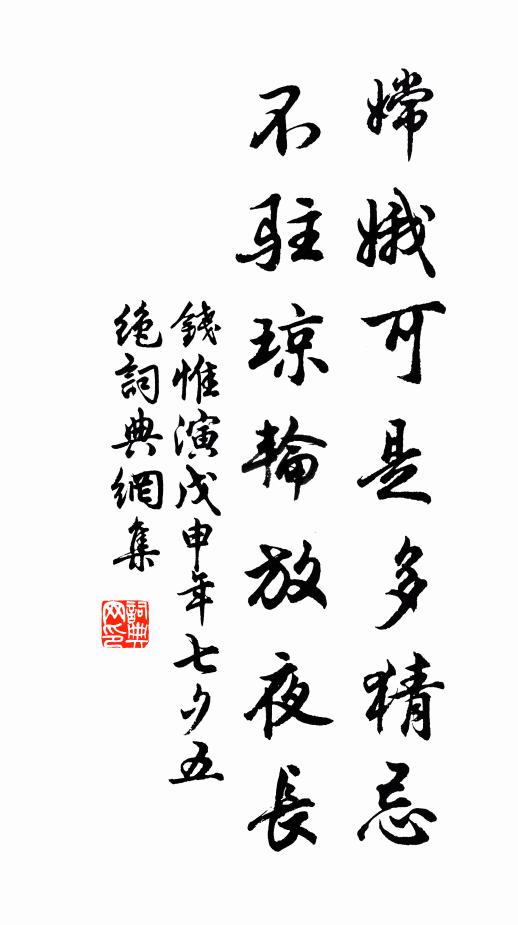 嫦娥可是多猜忌
不駐琼輪放夜長
錢惟演戊申年七夕五
絶詞典網集
詞典网印